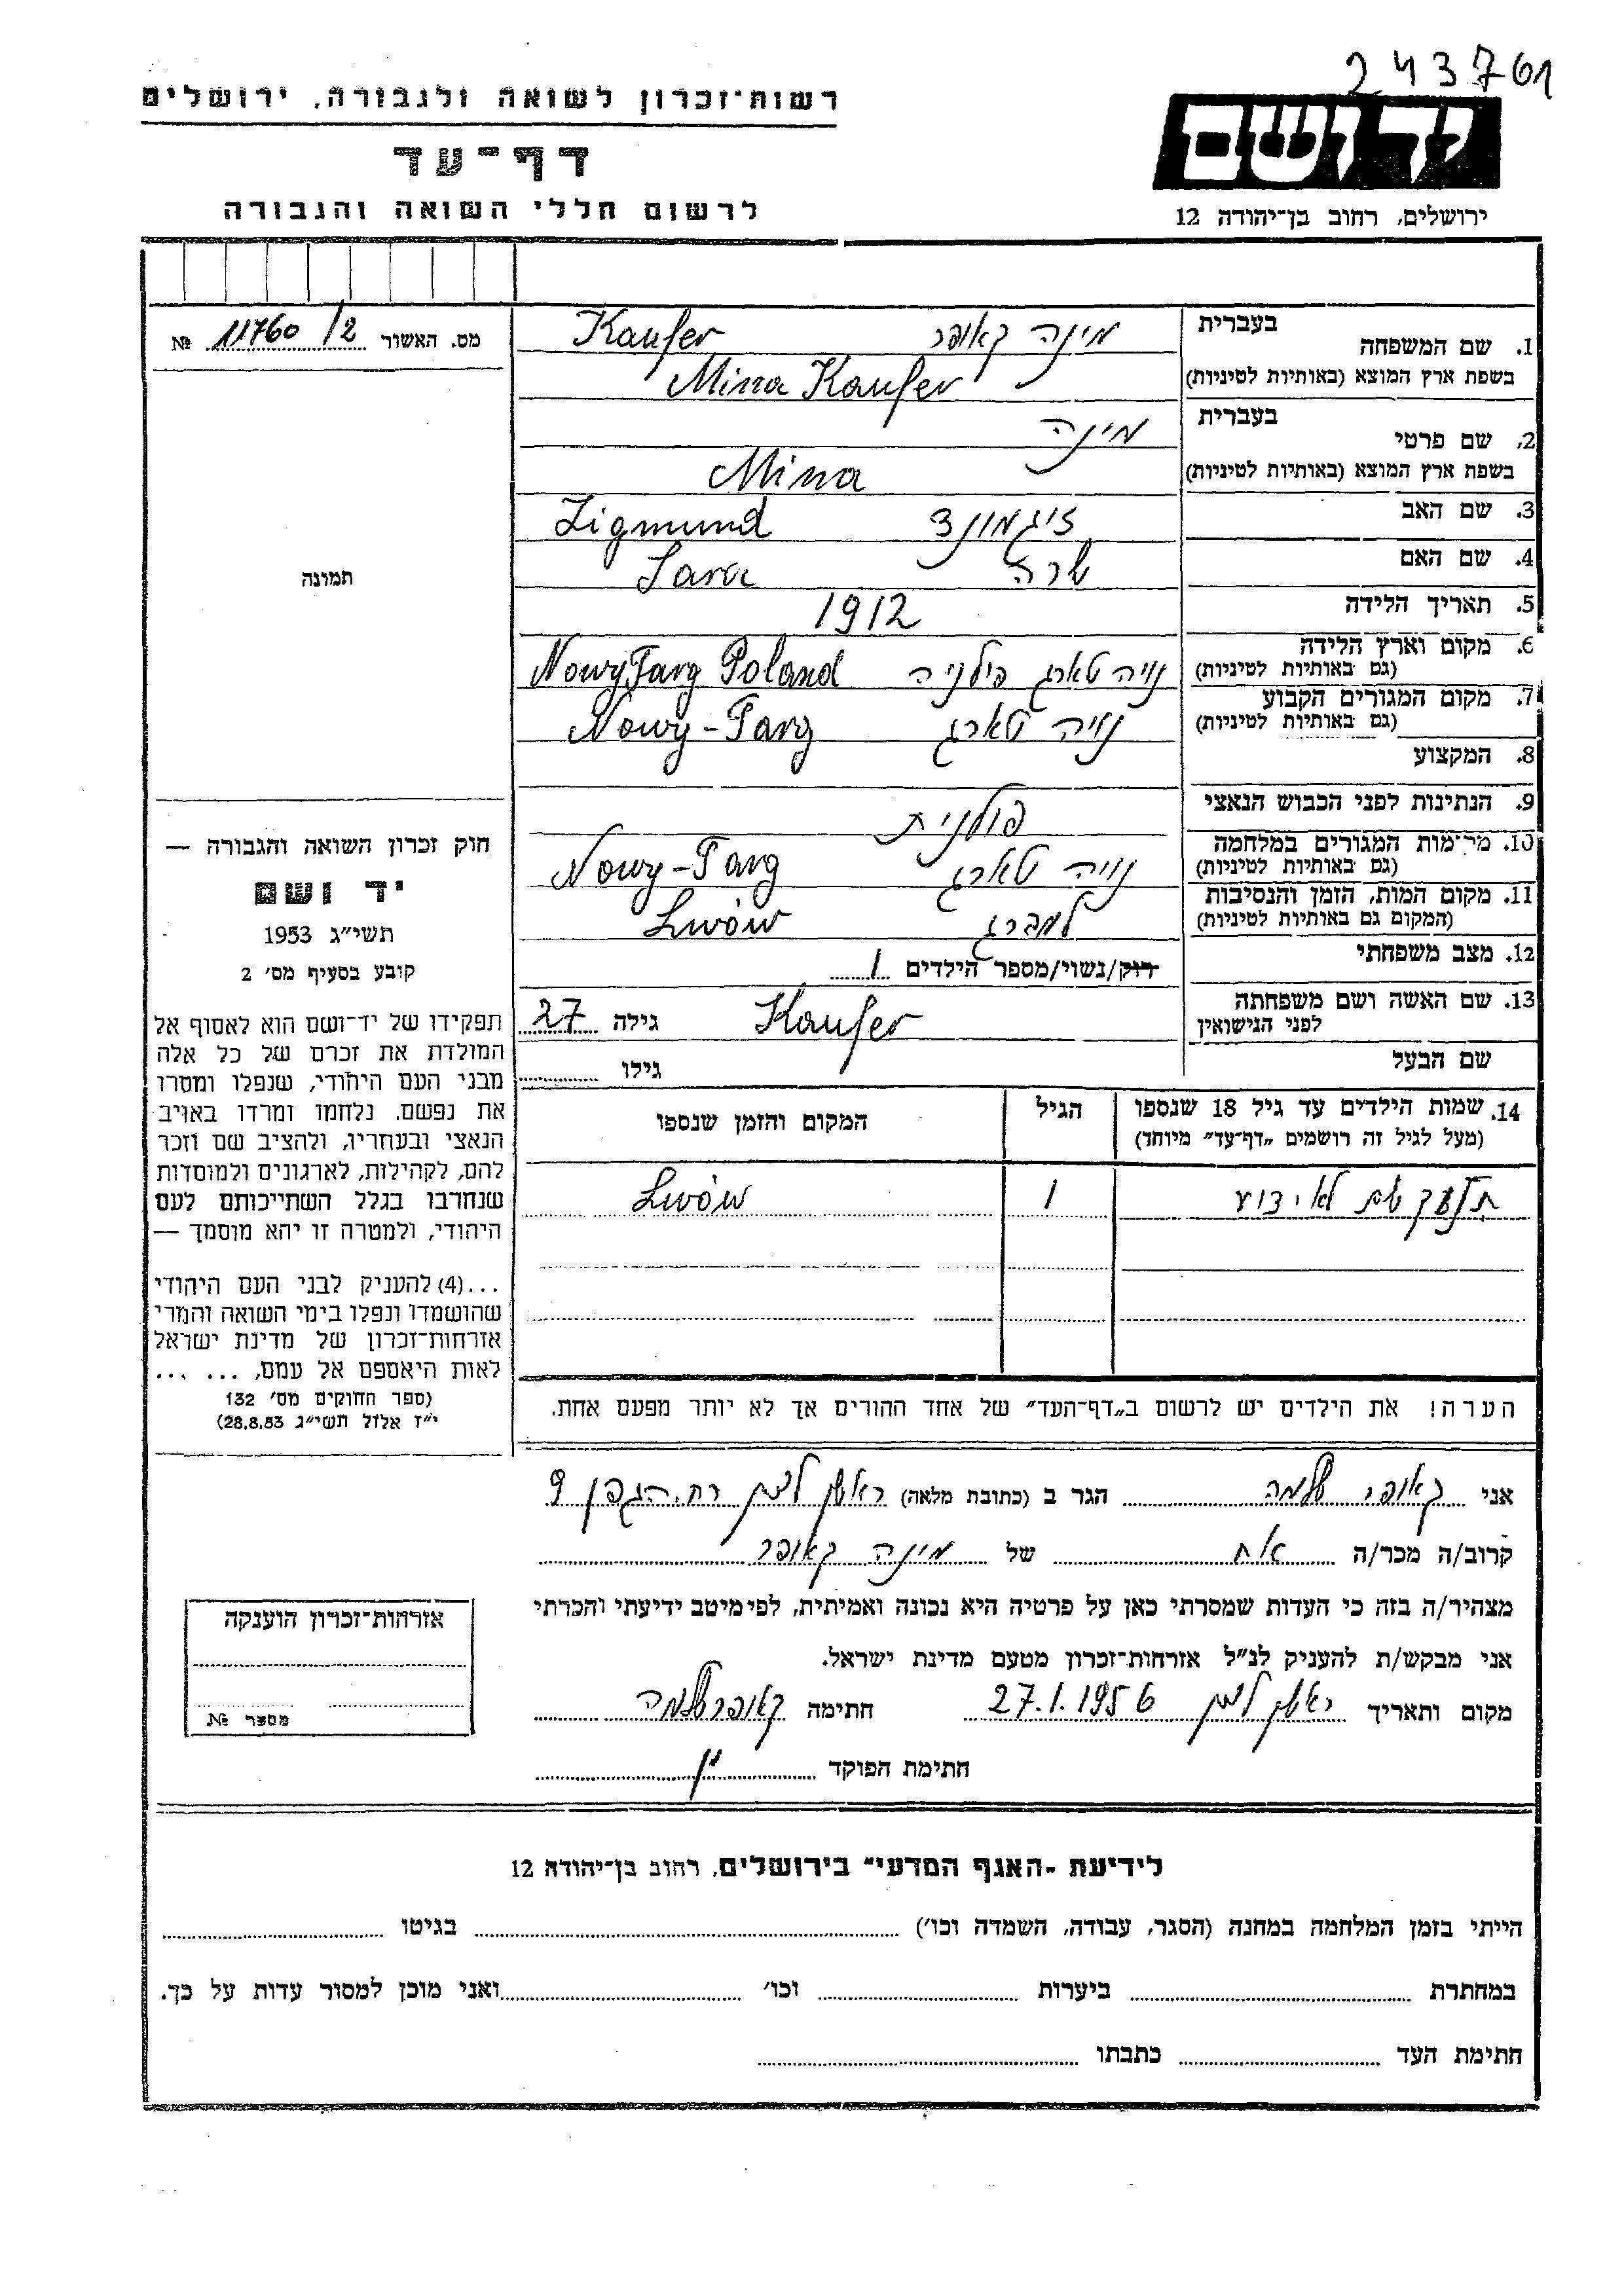 243761
רשות־זכרון לשואה ולגבורה, ירושלים
דף־עד
לרשום חללי השואה והגבורה
ידושם
ירושלים, רחוב בן־יהודה 12
מס. האשור 11760/2 №
תמונה
חוק זכרון השואה והגבורה —
יד ושם
תשי״ג 1953
קובע בסעיף מס׳ 2
תפקידו של יד־ושם הוא לאסוף אל
המולדת את זכרם של כל אלה
מבני העם היהודי, שנפלו ומסרו
את נפשם, נלחמו ומרדו באויב
הנאצי ובעוזריו, ולהציב שם וזכר
להם, לקהילות, לארגונים ולמוסדות
שנחרבו בגלל השתייכותם לעם
היהודי, ולמטרה זו יהא מוסמך —
...(4) להעניק לבני העם היהודי
שהושמדו ונפלו בימי השואה והמרי
אזרחות־זכרון של מדינת ישראל
לאות היאספם אל עמם, ... ...
(ספר החוקים מס׳ 132
י״ז אלול תשי״ג 28.8.53)
1. שם המשפחה בעברית מינה קאופר Kaufer
בשפת ארץ המוצא (באותיות לטיניות) Mina Kaufer
2. שם פרטי בעברית מינה
בשפת ארץ המוצא (באותיות לטיניות) Mina
3. שם האב זיגמונד Zigmund
4. שם האם שרה Sara
5. תאריך הלידה 1912
6. מקום וארץ הלידה (גם באותיות לטיניות) נויה טארג פילניה Nowy Targ Poland
7. מקום המגורים הקבוע (גם באותיות לטיניות) נויה טארג Nowy-Targ
8. המקצוע
9. הנתינות לפני הכבוש הנאצי פולנית
10. מקומות המגורים במלחמה (גם באותיות לטיניות) נויה טארג Nowy-Targ
11. מקום המות, הזמן והנסיבות (המקום גם באותיות לטיניות) למברג Lwów
12. מצב משפחתי רוק/נשוי/מספר הילדים 1
13. שם האשה ושם משפחתה לפני הנישואין Kaufer גילה 27
שם הבעל גילו
14. שמות הילדים עד גיל 18 שנספו (מעל לגיל זה רושמים „דף־עד״ מיוחד) הגיל המקום והזמן שנספו
שם לא ידוע 1 Lwów
הערה! את הילדים יש לרשום ב„דף־העד״ של אחד ההורים אך לא יותר מפעם אחת.
אני קאופר שלמה הגר ב (כתובת מלאה) ראשון לציון רח. הגפן 9
קרוב/ה מכר/ה אח של מינה קאופר
מצהיר/ה בזה כי העדות שמסרתי כאן על פרטיה היא נכונה ואמיתית, לפי מיטב ידיעתי והכרתי
אני מבקש/ת להעניק לנ״ל אזרחות־זכרון מטעם מדינת ישראל.
מקום ותאריך ראשון לציון 27.1.1956 חתימה קאופר שלמה
חתימת הפוקד
אזרחות־זכרון הוענקה
מספר №
לידיעת ״האגף המדעי״ בירושלים, רחוב בן־יהודה 12
הייתי בזמן המלחמה במחנה (הסגר, עבודה, השמדה וכו׳) בגיטו
במחתרת ביערות וכו׳ ואני מוכן למסור עדות על כך.
חתימת העד כתבתו